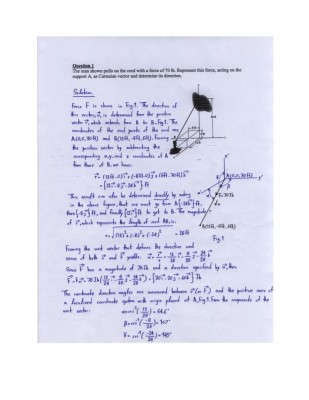 Question 1
The man shown pulls on the cord with a force of 70 lb. Represent this force, acting on the
support A, as Cartesian vector and determine its direction.
Solution:
Force F is shown in Fig.1. The direction of
this vector, u, is determined from the position
vector r, which extends from A to B, Fig.1. The
coordinates of the end points of the cord are
A(0,0,30ft) and B(12ft,-8ft,6ft). Forming
the position vector by subtracting the
corresponding x,y, and z coordinates of A
from those of B, we have:
This result can also be determined directly by noting
in the above figure, that one must go from A {-24k} ft,
then {-8j} ft, and finally {12i} ft to get to B. The magnitude
of r, which represents the length of cord AB, is:
r = √(12)² + (-8)² + (-24)² = 28ft
Forming the unit vector that defines the direction and
sense of both r and F yields:
Since F has a magnitude of 70 lb and a direction specified by u, then
The coordinate direction angles are measured between r (or F) and the positive axes of
a localized coordinate system with origin placed at A, Fig.1. From the components of the
unit vector:
A(0,0,30ft)
Fig.1